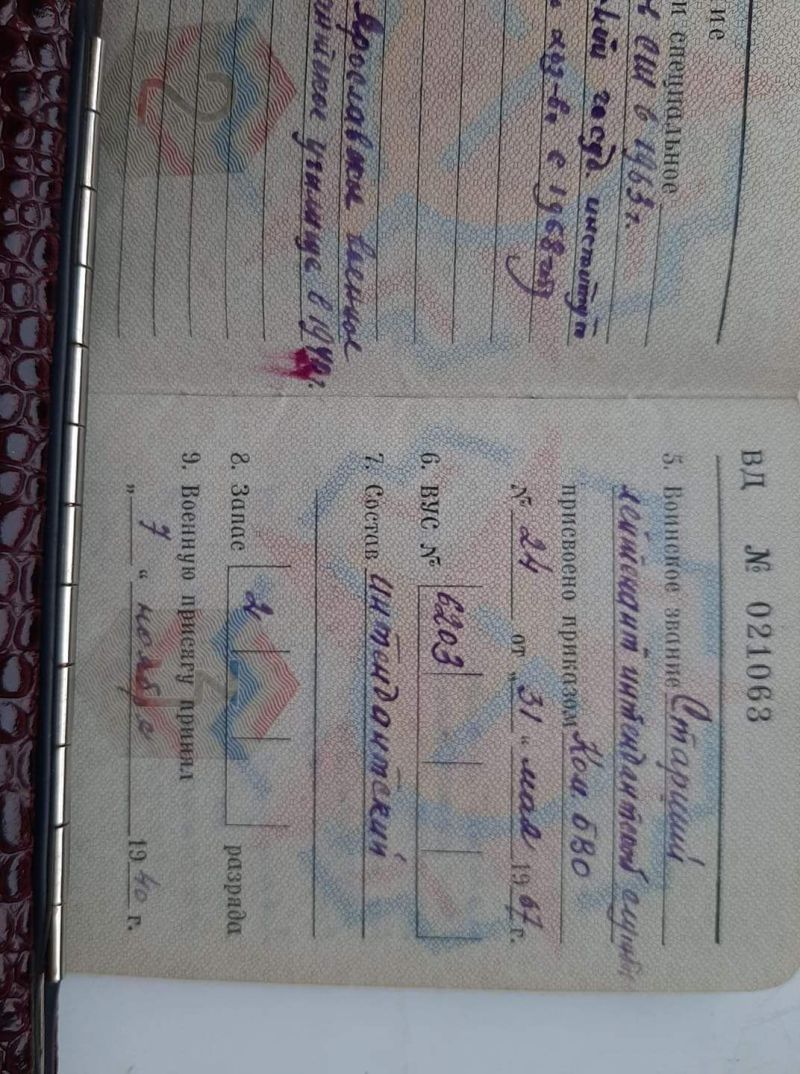 ние
и специальное
в 1963 г.
госуд. институт
с 1968 году
Ярославское военное
училище в 1940 г.
2
ВД № 021063
5. Воинское звание Старший
лейтенант интендантской службы
присвоено приказом Ком. БВО
№ 24 от „31“ мая 1967 г.
6. ВУС № 6203
7. Состав интендантский
8. Запас 2 разряда
9. Военную присягу принял
„7“ ноября 1940 г.